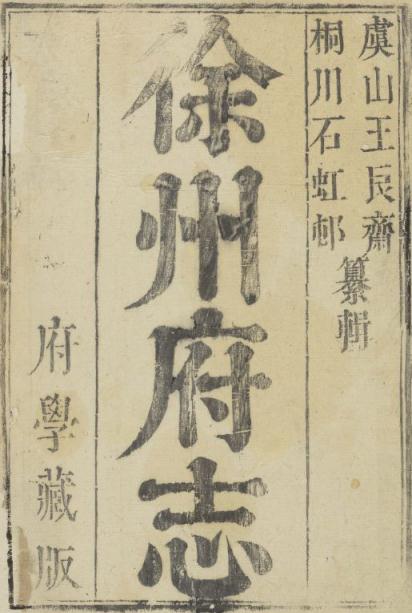 虞山王辰齋
桐川石虹邨
纂輯
徐州府志
府學藏版